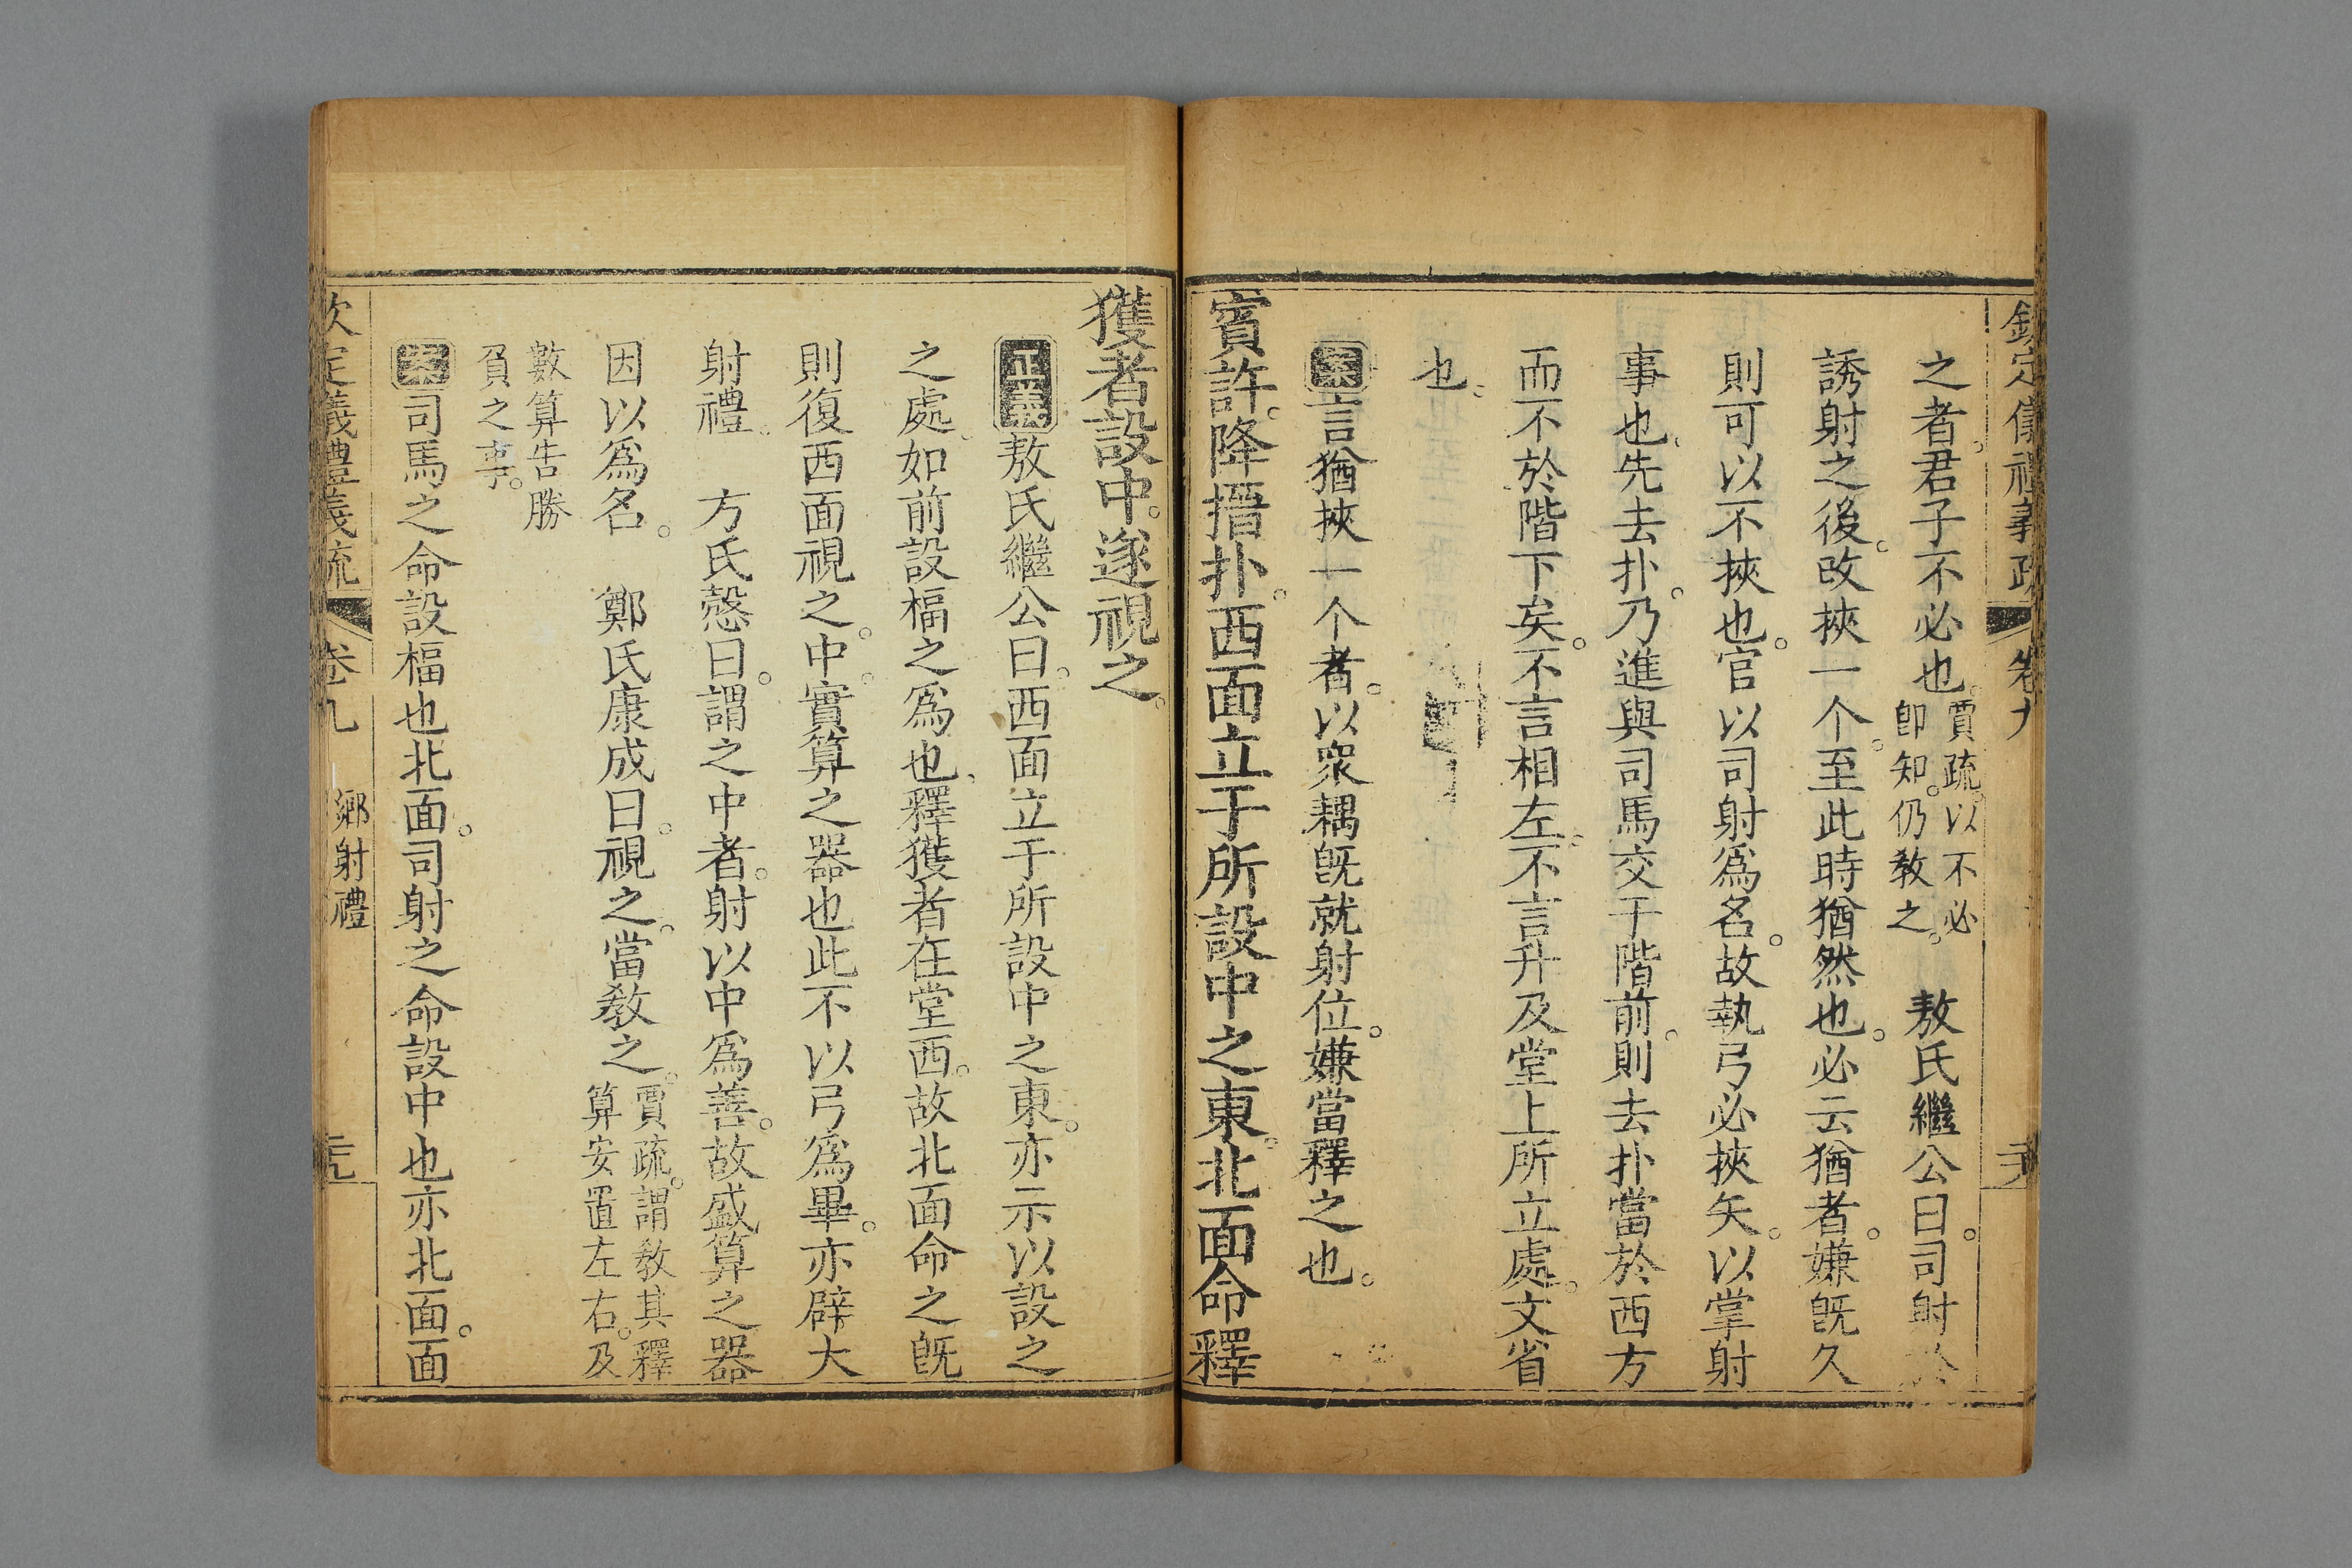 欽定儀禮義疏 卷九
之者君子不必也。賈疏。以不必
卽知。仍教之。 敖氏繼公曰。司射於
誘射之後。改挾一个。至此時猶然也。必云猶者。嫌旣久
則可以不挾也。官以司射爲名。故執弓必挾矢。以掌射
事也。先去扑。乃進與司馬交于階前。則去扑當於西方
而不於階下矣。不言相左。不言升及堂上所立處。文省
也。
案言猶挾一个者。以衆耦旣就射位。嫌當釋之也。
賓許。降搢扑。西面立于所設中之東。北面命釋
獲者設中。遂視之。
正義敖氏繼公曰。西面立于所設中之東。亦示以設之
之處。如前設楅之爲也。釋獲者在堂西。故北面命之旣
則復西面視之。中。實算之器也此不以弓爲畢。亦辟大
射禮。 方氏慤曰。謂之中者。射以中爲善。故盛算之器
因以爲名。 鄭氏康成曰。視之。當教之。賈疏。謂教其釋
算安置左右。及
數算告勝
負之事。
案司馬之命設楅也北面。司射之命設中也亦北面。面
欽定儀禮義疏 卷九 鄉射禮 二九